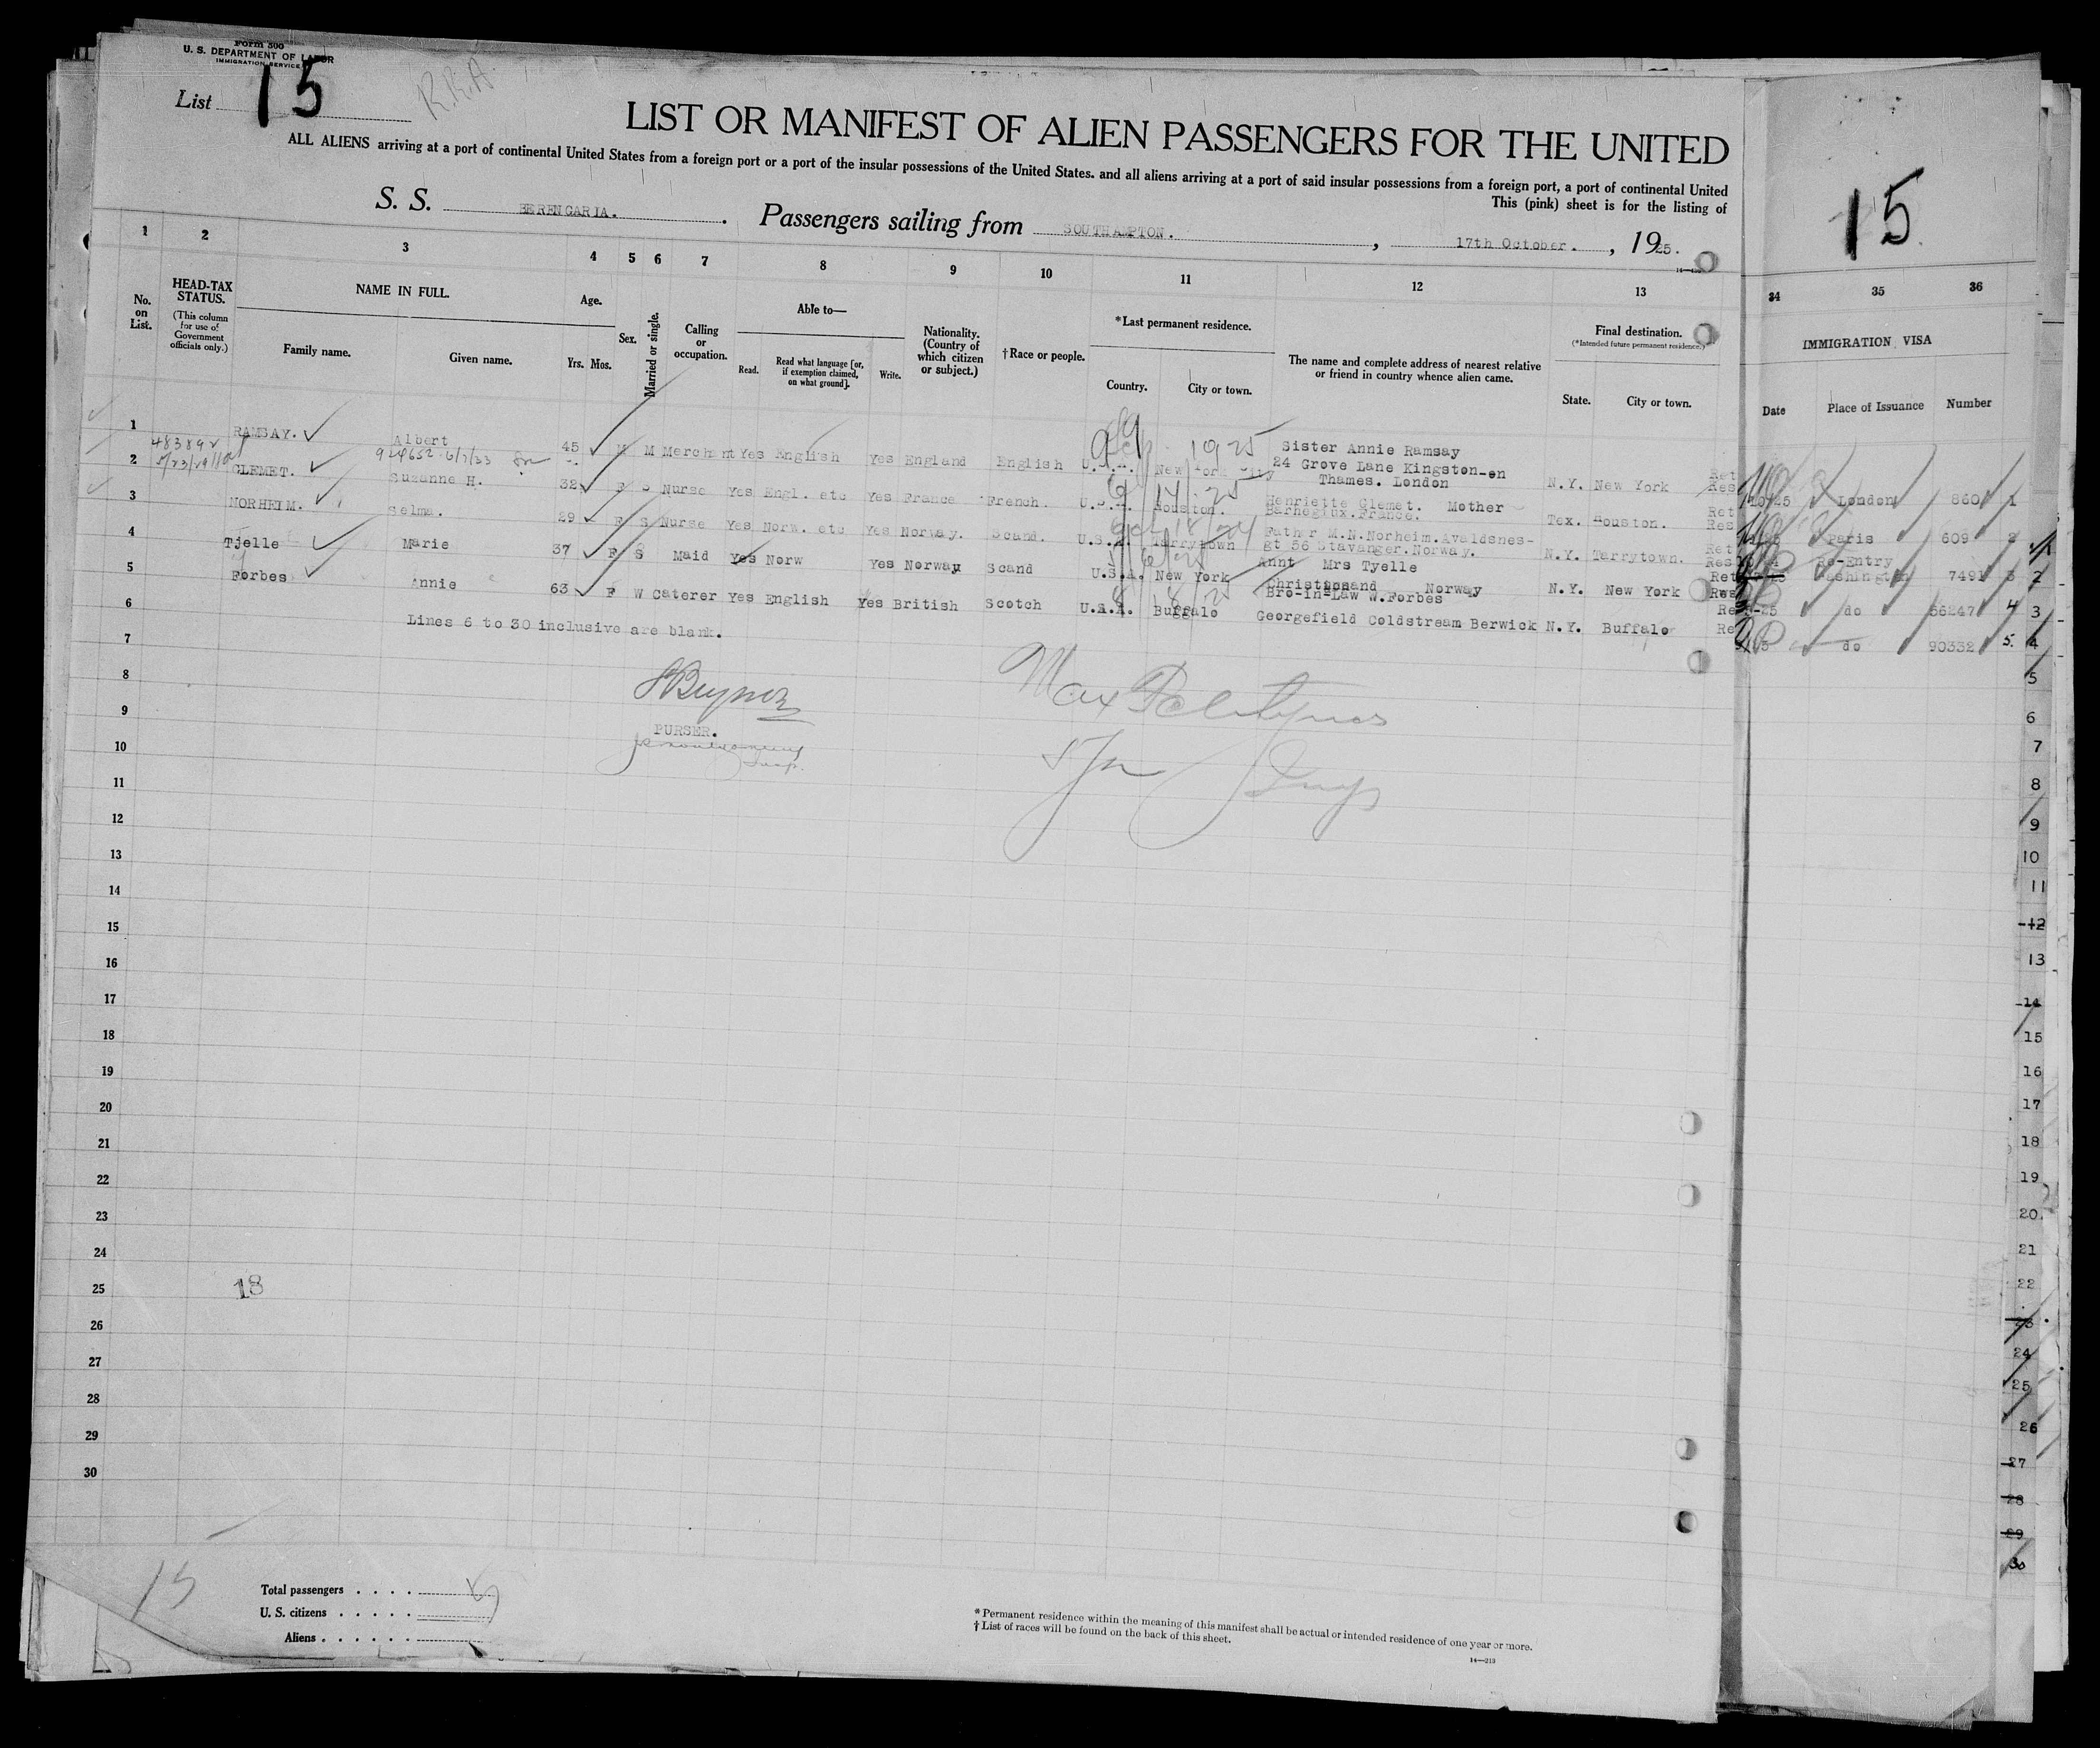 Form 500
U. S. DEPARTMENT OF LABOR
IMMIGRATION SERVICE
List 15
R.R.A.
LIST OR MANIFEST OF ALIEN PASSENGERS FOR THE UNITED
15
ALL ALIENS arriving at a port of continental United States from a foreign port or a port of the insular possessions of the United States. and all aliens arriving at a port of said insular possessions from a foreign port, a port of continental United
This (pink) sheet is for the listing of
S. S. BERENGARIA. Passengers sailing from SOUTHAMPTON. , 17th October. , 1925.
1 2 3 4 5 6 7 8 9 10 11 12 13 34 35 36
No. on List.
HEAD-TAX STATUS.
(This column for use of Government officials only.)
NAME IN FULL.
Family name. Given name.
Age.
Yrs. Mos.
Sex.
Married or single.
Calling or occupation.
Able to—
Read. Read what language [or, if exemption claimed, on what ground]. Write.
Nationality. (Country of which citizen or subject.)
†Race or people.
*Last permanent residence.
Country. City or town.
The name and complete address of nearest relative or friend in country whence alien came.
Final destination.
(*Intended future permanent residence.)
State. City or town.
IMMIGRATION VISA
Date Place of Issuance Number
1 RAMSAY. Albert 45 M M Merchant Yes English Yes England English U.S.A. New York City Sister Annie Ramsay
24 Grove Lane Kingston-on
Thames. London N.Y. New York Ret Res London 860 1
483892
924652 6/7/33
2 CLEMET. Suzanne H. 32 F S Nurse Yes Engl. etc Yes France French. U.S.A. Houston. Henriette Clemet. Mother
France. Tex. Houston. Ret Res Paris 609 2
3 NORHEIM. Selma. 29 F S Nurse Yes Norw. etc Yes Norway. Scand. U.S.A. Tarrytown Father M.N.Norheim.Avaldsnes-
gt 56 Stavanger.Norway. N.Y. Tarrytown. Ret Res Re-Entry Washington 7491 3
4 Tjelle Marie 37 F S Maid Yes Norw Yes Norway Scand U.S.A. New York Annt Mrs Tyelle
Christiansand Norway N.Y. New York Ret Res do 56247 4
5 Forbes Annie 63 F W Caterer Yes English Yes British Scotch U.S.A. Buffalo Bro-in-Law W.Forbes
Georgefield Coldstream Berwick N.Y. Buffalo do 90332 5.
6 Lines 6 to 30 inclusive are blank.
7
8
9 PURSER.
10
11
12
13
14
15
16
17
18
19
20
21
22
23
24
25 18
26
27
28
29
30
2
3
4
5
6
7
8
9
10
11
12
13
14
15
16
17
18
19
20
21
22
23
24
25
26
27
28
29
30
15
Total passengers . . . . 5
U. S. citizens . . . . .
Aliens . . . . . .
* Permanent residence within the meaning of this manifest shall be actual or intended residence of one year or more.
† List of races will be found on the back of this sheet.
14—213